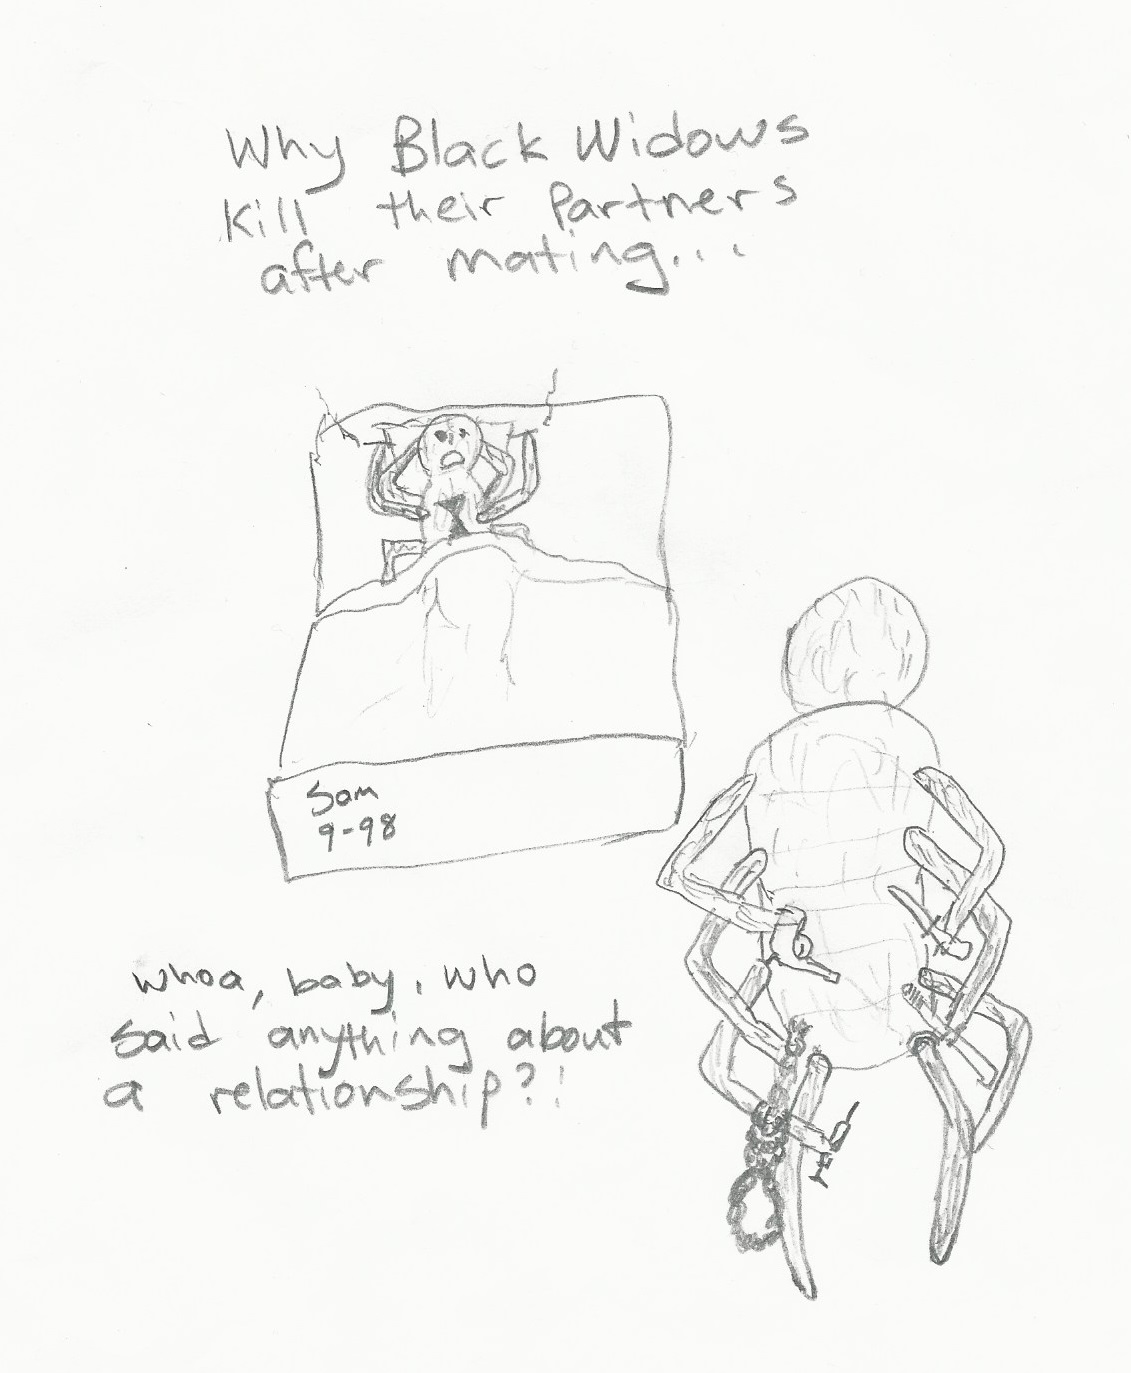 Why Black Widows
Kill their Partners
after mating...
Sam
9-98
whoa, baby, who
said anything about
a relationship?!